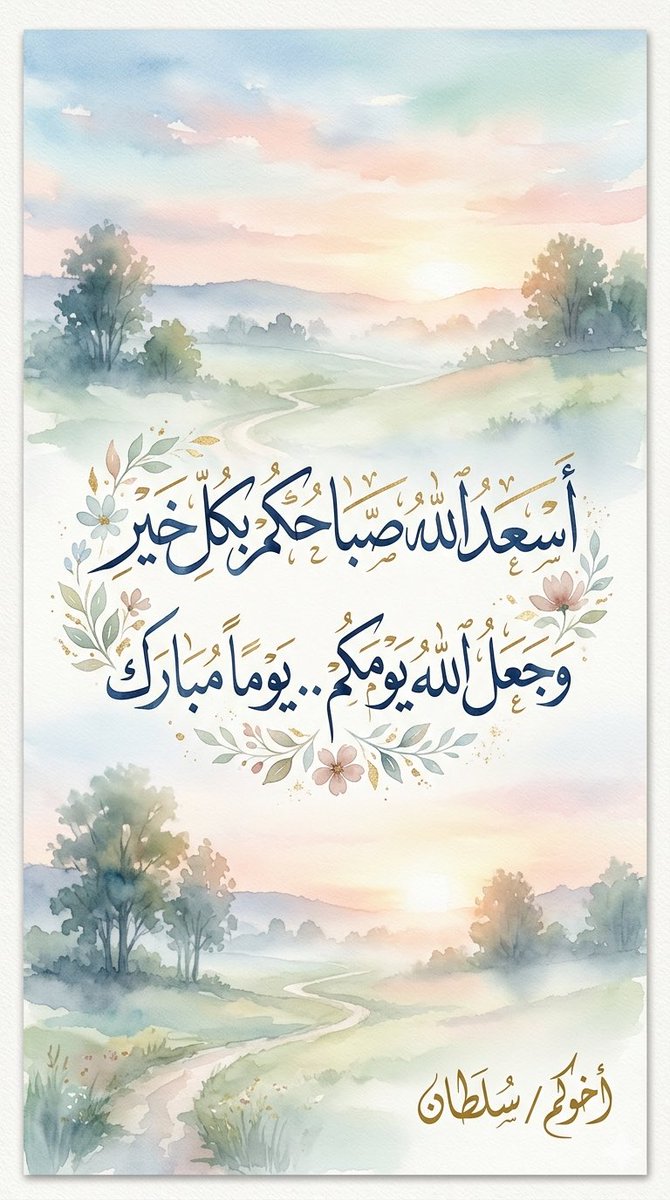 أَسعَدُ ٱللهُ صَبَاحُكُم بِكُلِّ خَيرِ
وَجَعَلُ ٱللهُ يَومَكُم .. يَوماً مُبَارَك
أخوكم / سُلطَان